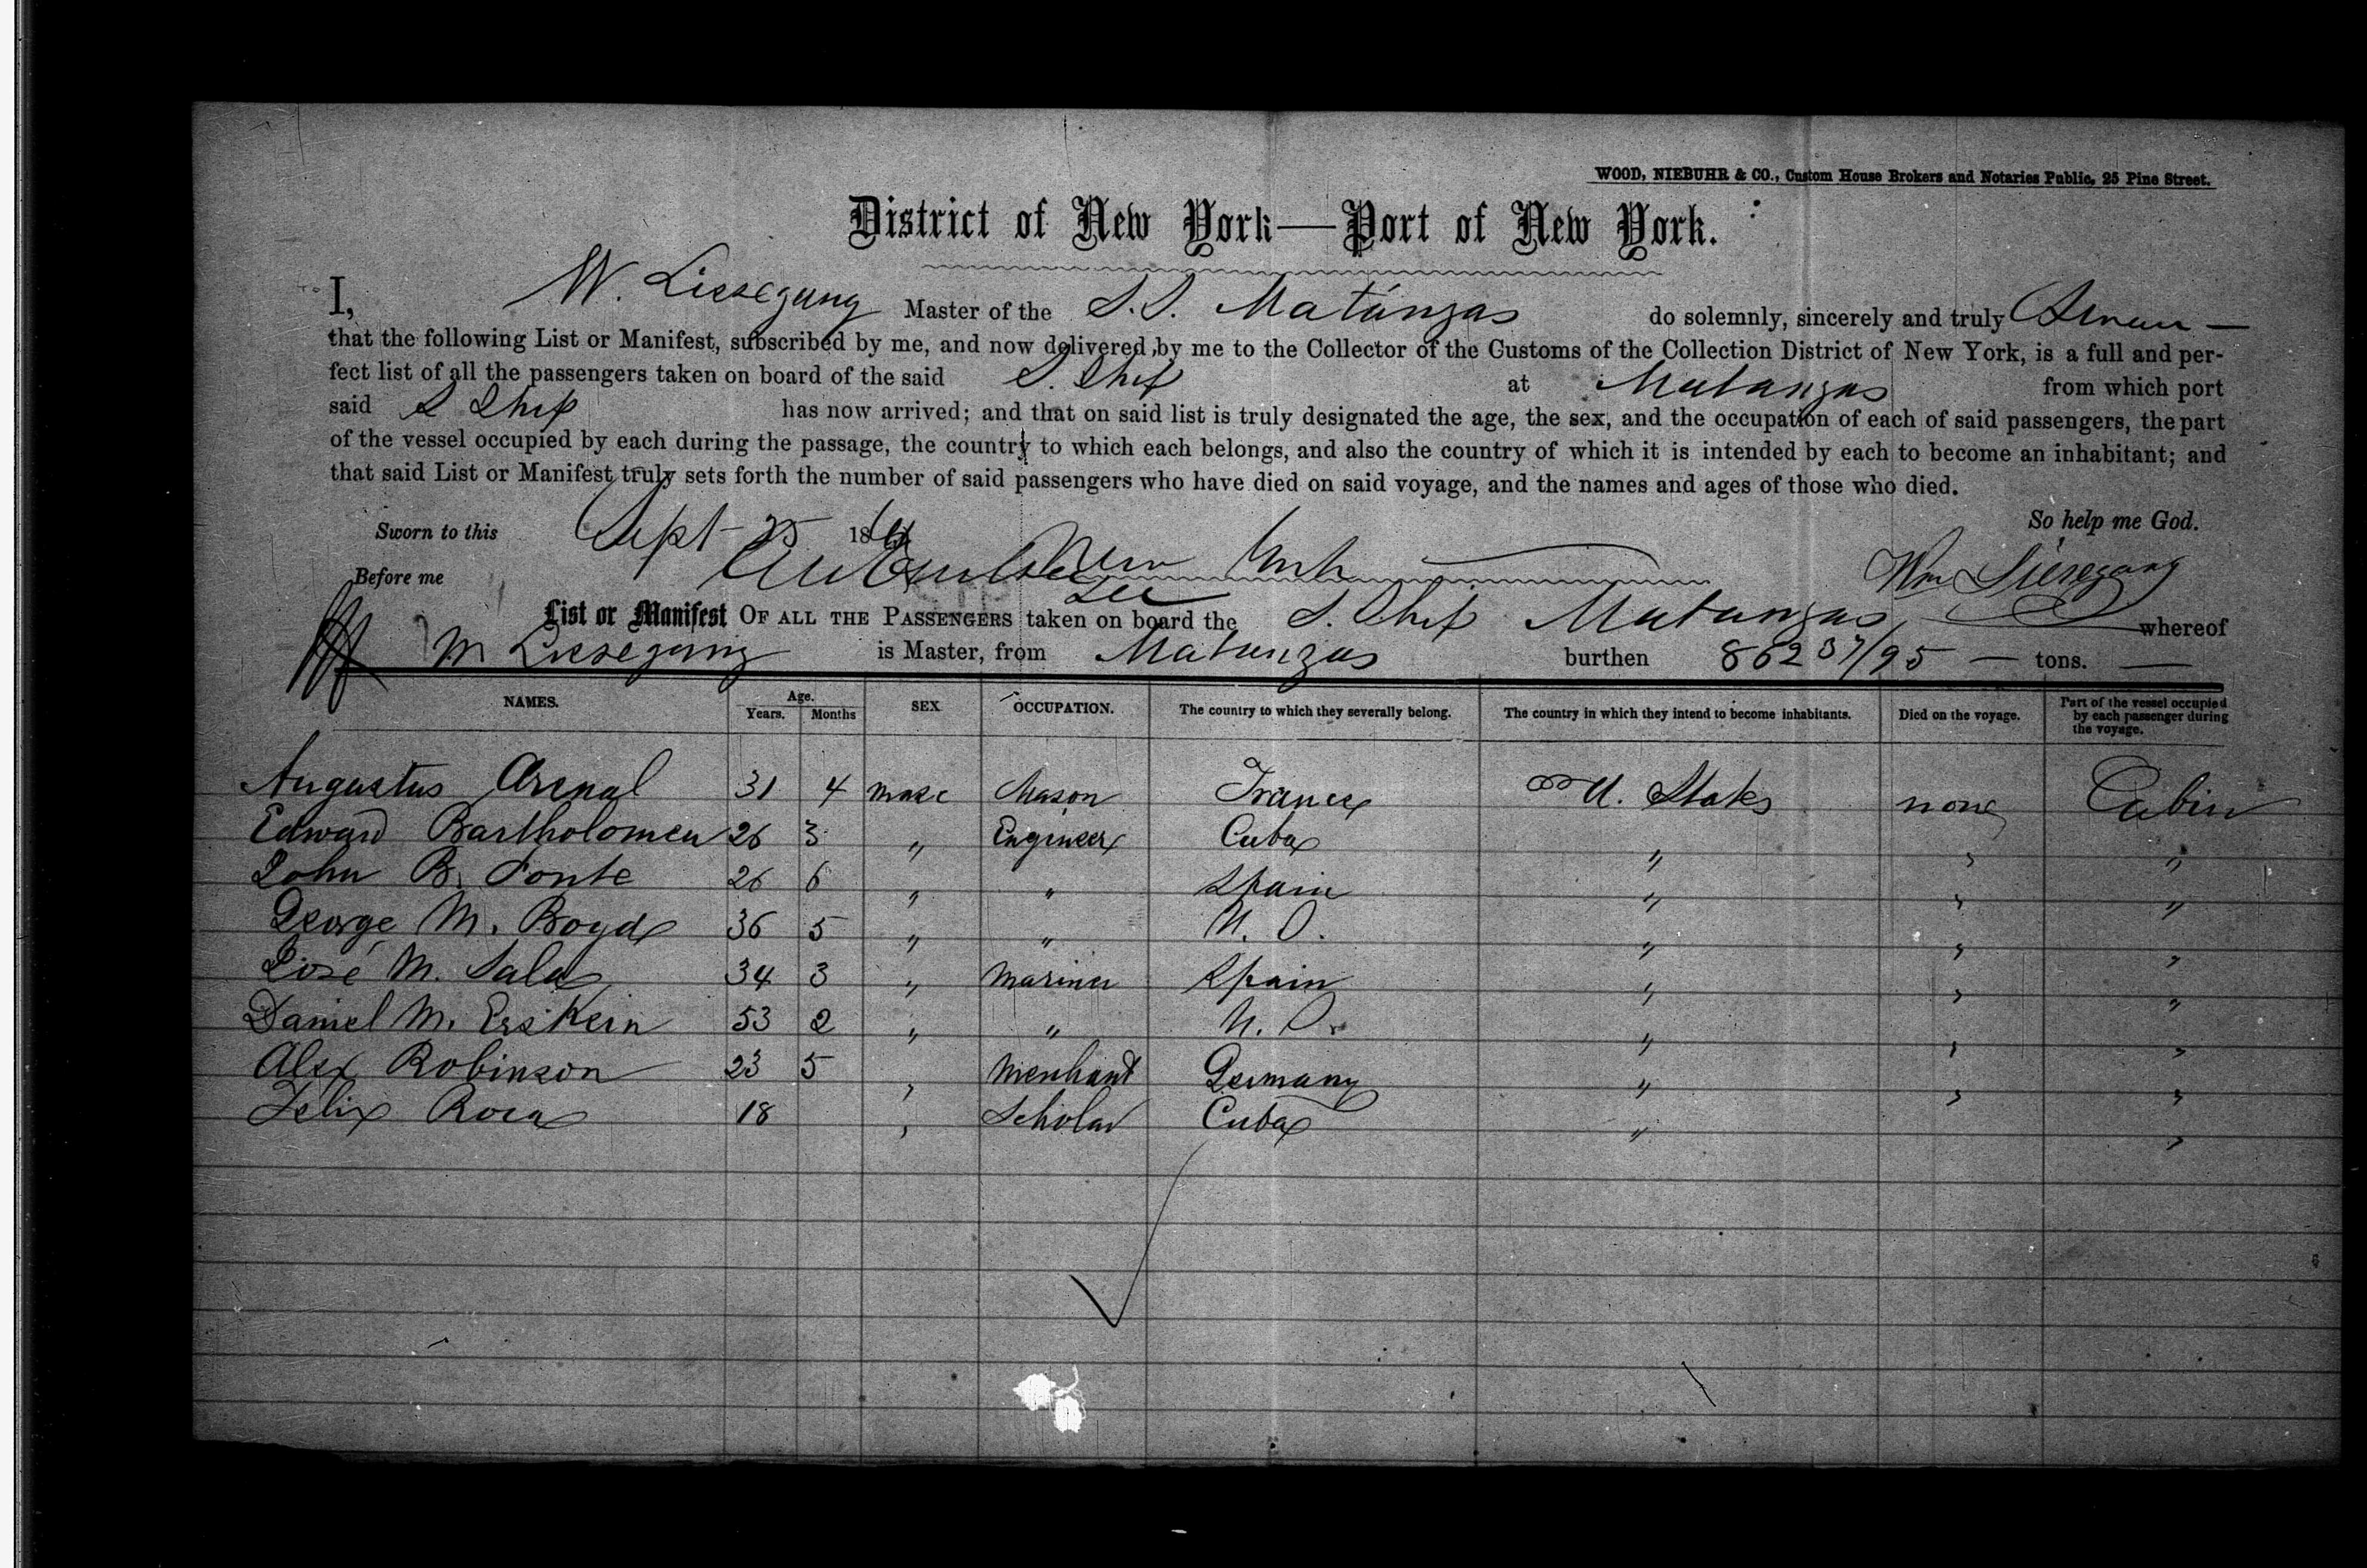 WOOD, NIEBUHR & CO., Custom House Brokers and Notaries Public, 25 Pine Street.
District of New York—Port of New York.
I, W. Liesegang Master of the S.S. Matanzas do solemnly, sincerely and truly Swear —
that the following List or Manifest, subscribed by me, and now delivered by me to the Collector of the Customs of the Collection District of New York, is a full and per-
fect list of all the passengers taken on board of the said S. Ship at Matanzas from which port
said S Ship has now arrived; and that on said list is truly designated the age, the sex, and the occupation of each of said passengers, the part
of the vessel occupied by each during the passage, the country to which each belongs, and also the country of which it is intended by each to become an inhabitant; and
that said List or Manifest truly sets forth the number of said passengers who have died on said voyage, and the names and ages of those who died.
Sworn to this Sept 25 186 So help me God.
Before me New York Wm Liesegang
List or Manifest OF ALL THE PASSENGERS taken on board the S. Ship Matanzas whereof
M Liesegang is Master, from Matanzas burthen 862 37/95 — tons. —
NAMES. Age. Years. Months SEX OCCUPATION. The country to which they severally belong. The country in which they intend to become inhabitants. Died on the voyage. Part of the vessel occupied by each passenger during the voyage.
Augustus Arenal 31 4 male Mason France U. States none Cabin
Edward Bartholomew 26 3 " Engineer Cuba " " "
John B. Ponte 26 6 " " Spain " " "
George M. Boyd 36 5 " " U. S. " " "
José M. Sala 34 3 " Mariner Spain " " "
Daniel M. Erskein 53 2 " " U. S. " " "
Alex Robinson 23 5 " Merchant Germany " " "
Felix Roca 18 " Scholar Cuba " "